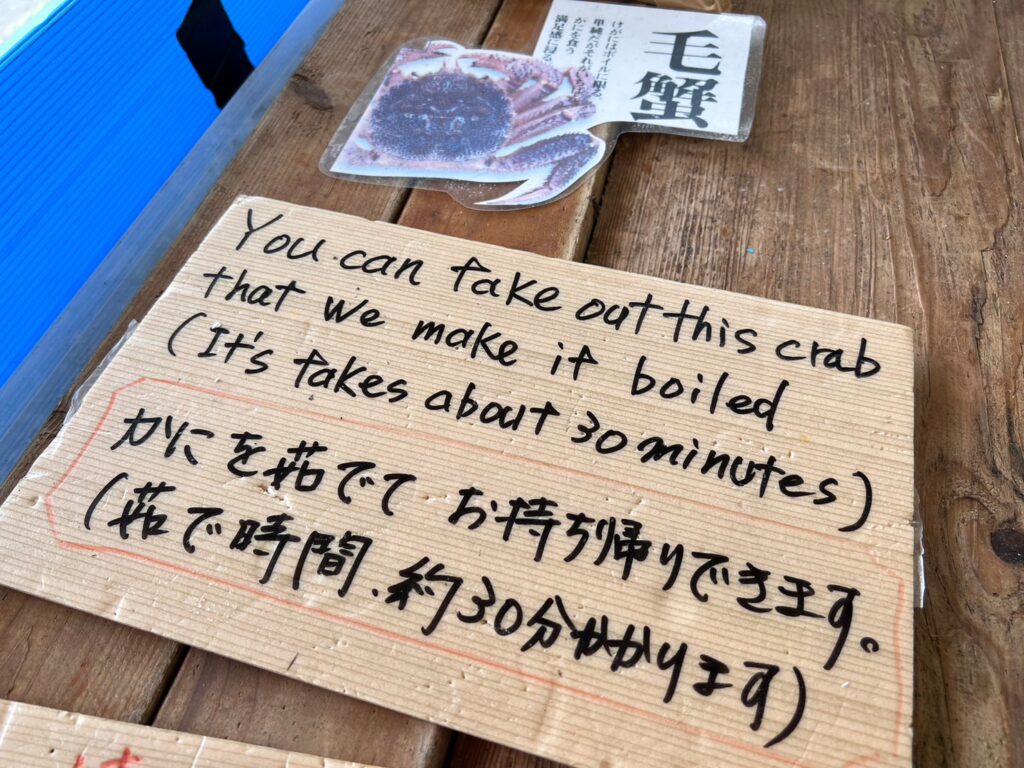 毛蟹
けがにはボイルに限る
かにを食う
満足感に浸る
You can take out this crab
that we make it boiled
(It's takes about 30 minutes)
かにを茹でて お持ち帰りできます。
(茹で時間.約30分かかります)